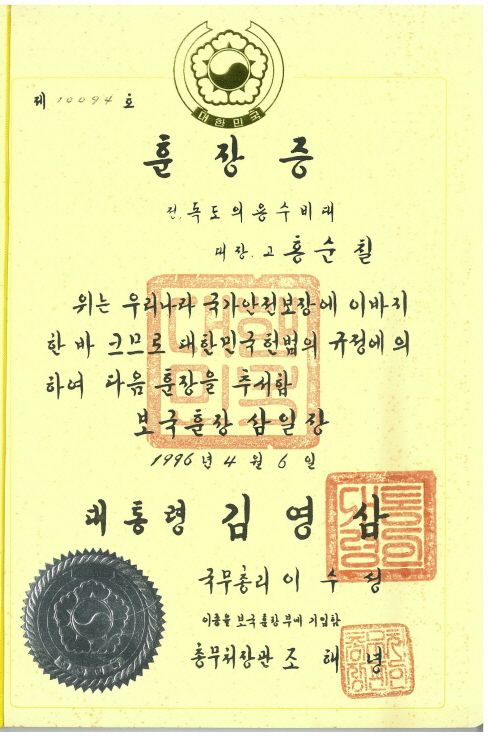 대한민국
제 10094 호
훈장증
전. 독도의용수비대
대장. 고 홍순칠
위는 우리나라 국가안전보장에 이바지
한 바 크므로 대한민국헌법의 규정에 의
하여 다음 훈장을 추서함
보국훈장 삼일장
1996년 4월 6일
대통령 김영삼
국무총리 이수성
이증을 보국훈장부에 기입함
총무처장관 조해녕